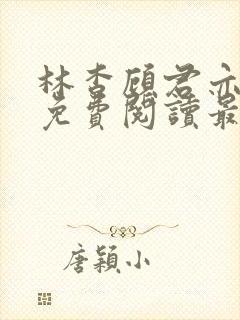 林杏顾君亦
免費閱讀最
唐穎小